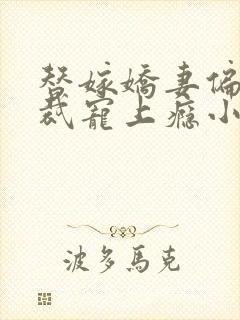 替嫁嬌妻偏
裁寵上癮小
波多馬克